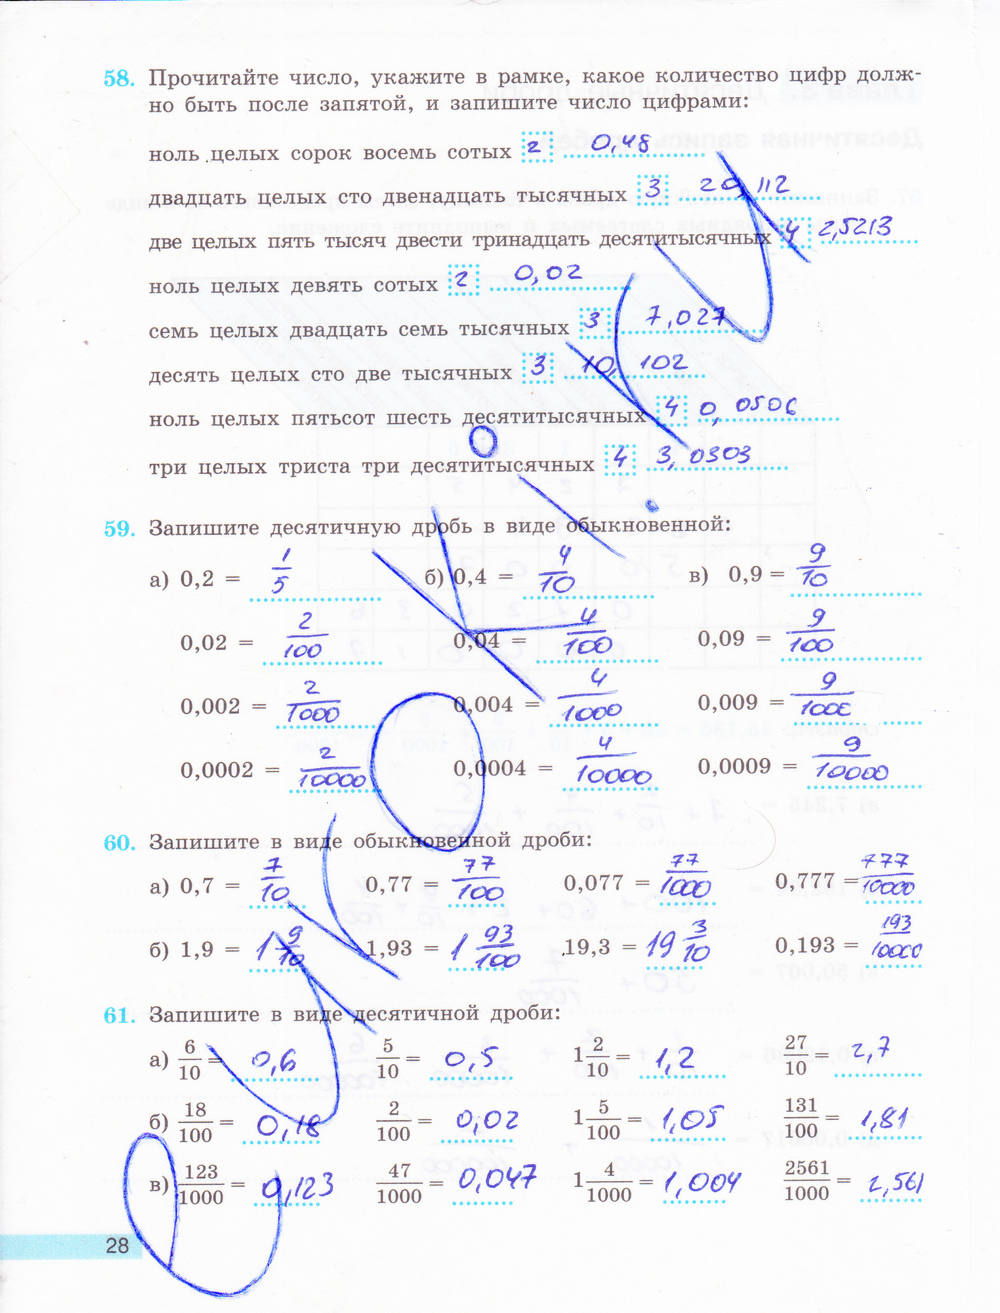 58. Прочитайте число, укажите в рамке, какое количество цифр долж-
но быть после запятой, и запишите число цифрами:
ноль целых сорок восемь сотых 2 0,48
двадцать целых сто двенадцать тысячных 3 20,112
две целых пять тысяч двести тринадцать десятитысячных 4 2,5213
ноль целых девять сотых 2 0,02
семь целых двадцать семь тысячных 3 7,027
десять целых сто две тысячных 3 10,102
ноль целых пятьсот шесть десятитысячных 4 0,0506
три целых триста три десятитысячных 4 3,0303
59. Запишите десятичную дробь в виде обыкновенной:
а) 0,2 = 1/5 б) 0,4 = 4/10 в) 0,9 = 9/10
0,02 = 2/100 0,04 = 4/100 0,09 = 9/100
0,002 = 2/1000 0,004 = 4/1000 0,009 = 9/1000
0,0002 = 2/10000 0,0004 = 4/10000 0,0009 = 9/10000
60. Запишите в виде обыкновенной дроби:
а) 0,7 = 7/10 0,77 = 77/100 0,077 = 77/1000 0,777 = 777/10000
б) 1,9 = 1 9/10 1,93 = 1 93/100 19,3 = 19 3/10 0,193 = 193/10000
61. Запишите в виде десятичной дроби:
а) 6/10 = 0,6 5/10 = 0,5 1 2/10 = 1,2 27/10 = 2,7
б) 18/100 = 0,18 2/100 = 0,02 1 5/100 = 1,05 131/100 = 1,81
в) 123/1000 = 0,123 47/1000 = 0,047 1 4/1000 = 1,004 2561/1000 = 2,561
28